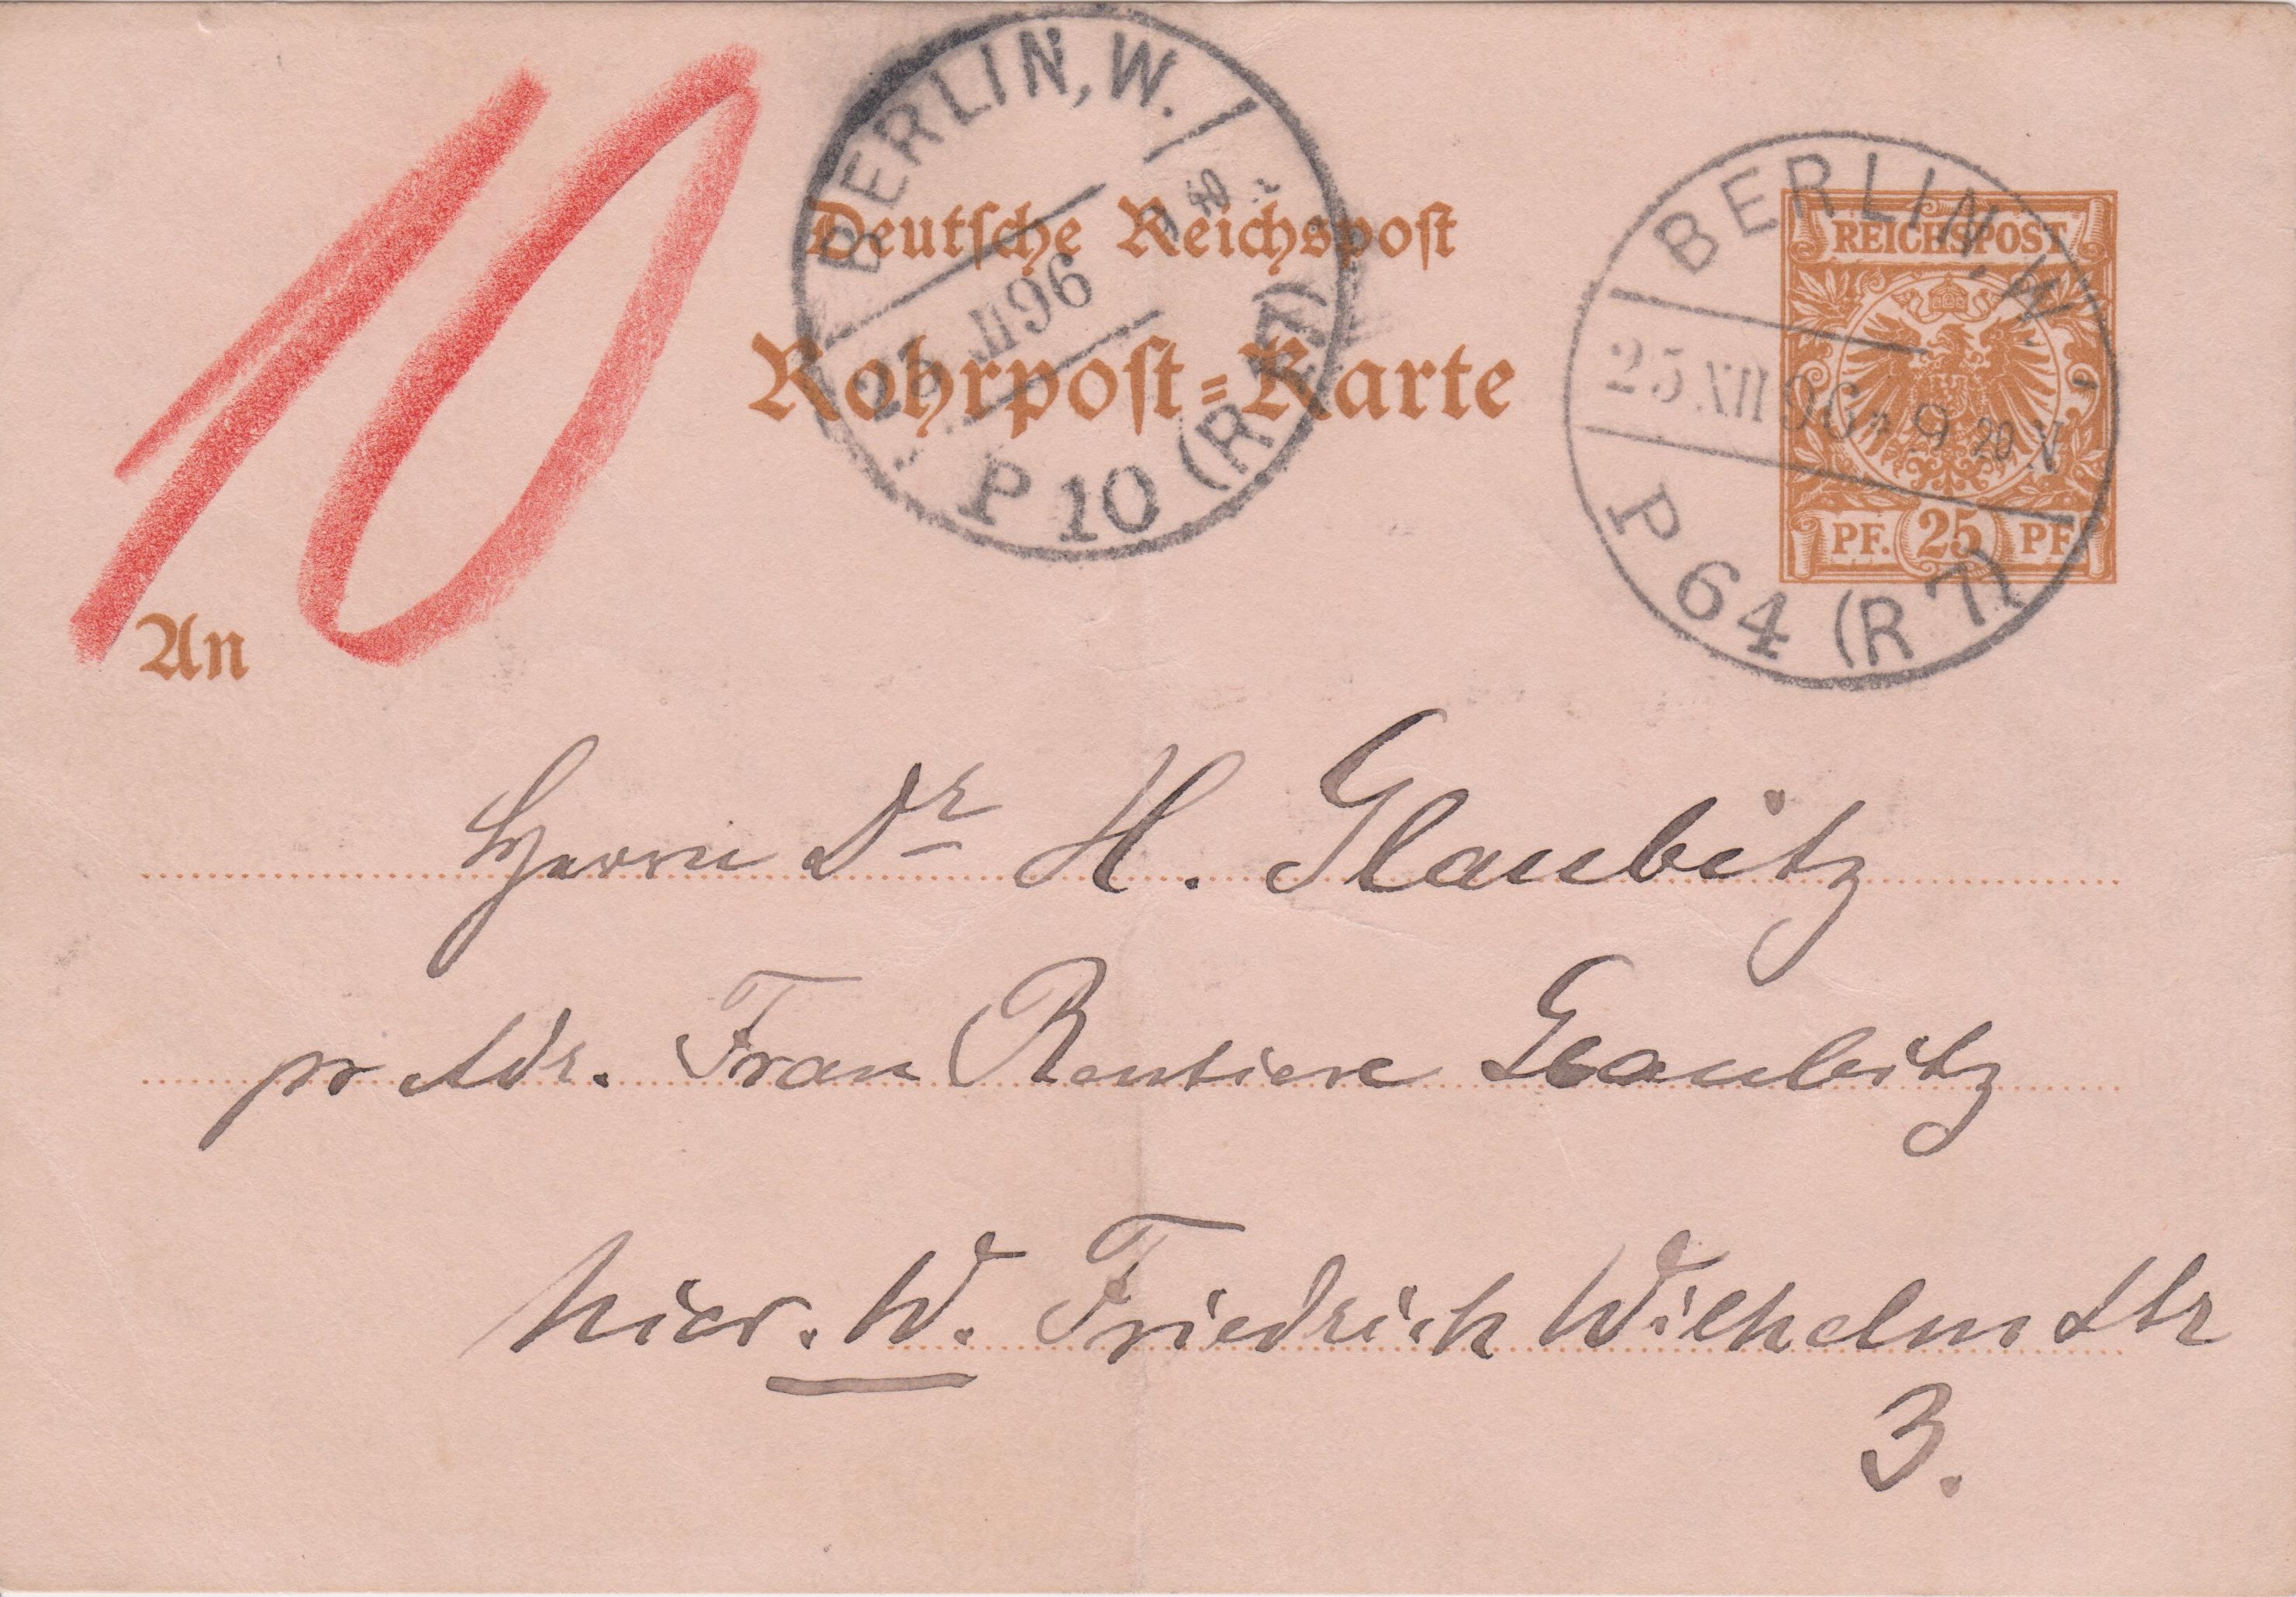 10
BERLIN, W.
25 XII 96 9 40 N
P 10 (R 
Deutsche Reichspost
Rohrpost-Karte
BERLIN. W.
25 XII 96 * 9 20 N
P 64 (R 7)
REICHSPOST
PF. 25 PF.
An
Herrn Dr H. Glaubitz
pr Adr. Frau Rentiere Glaubitz
hier. W. Friedrich Wilhelm Str
3.